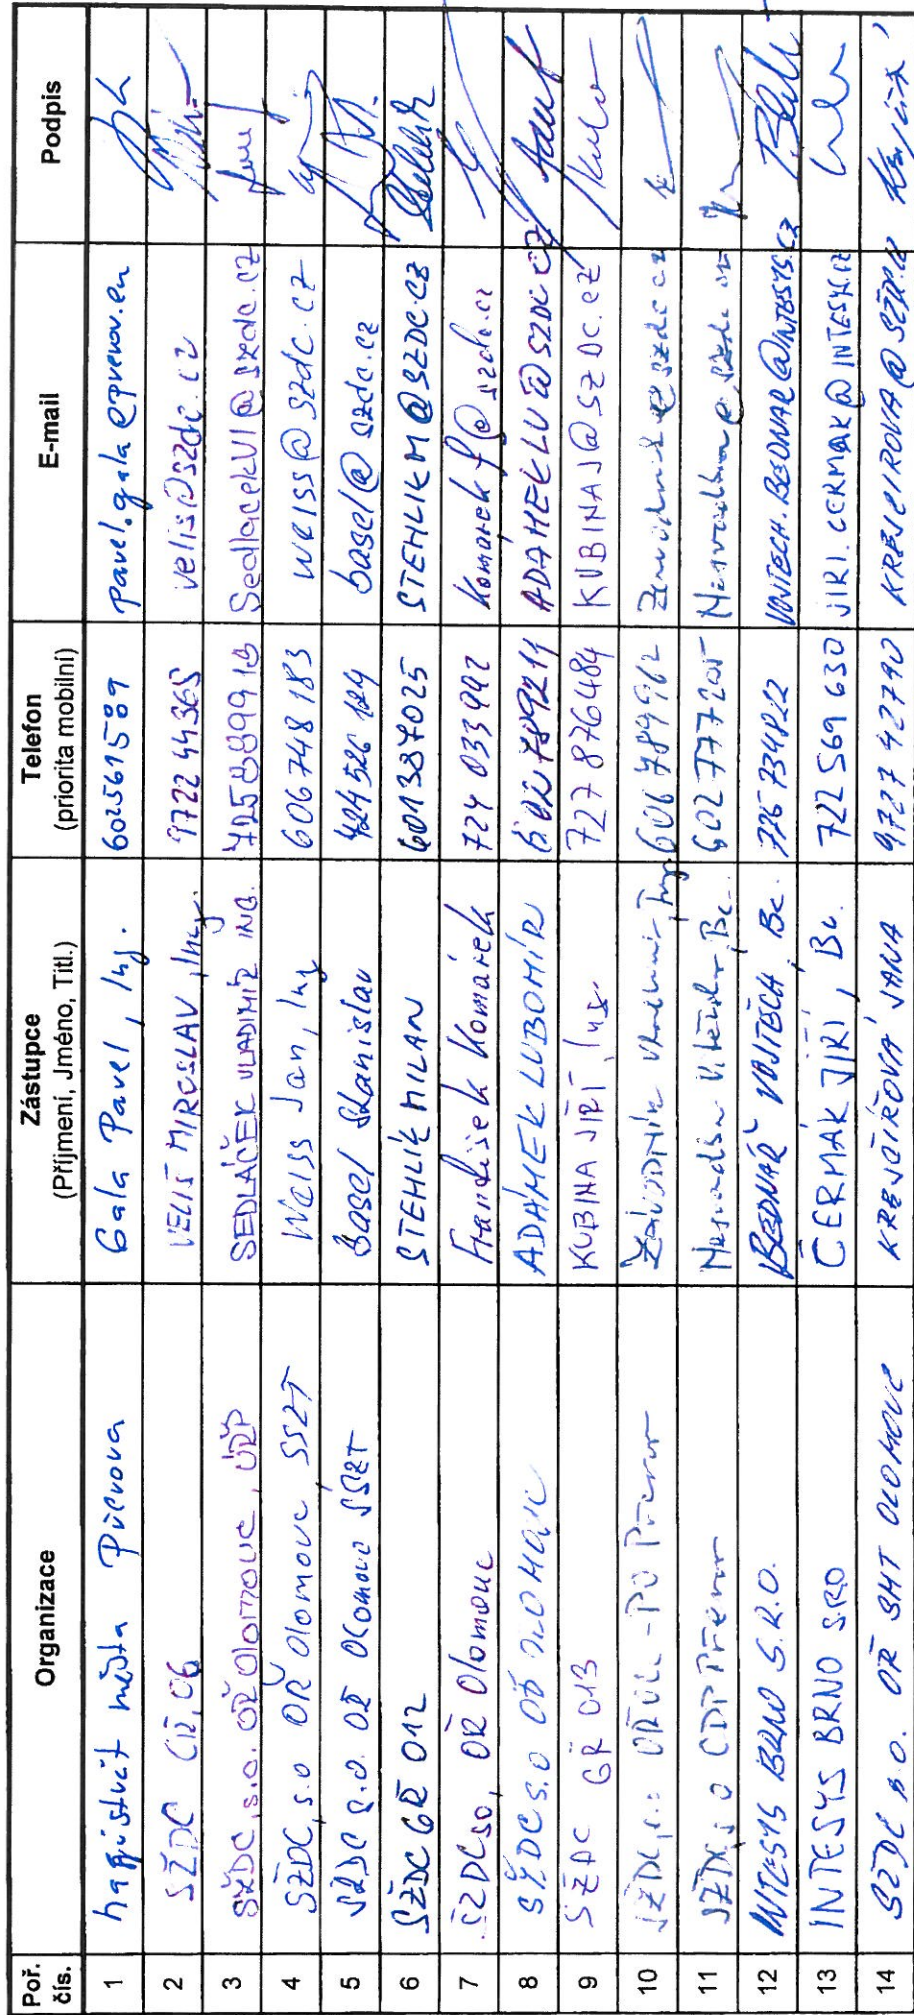 Poř. čís. Organizace Zástupce (Příjmení, Jméno, Titl.) Telefon (priorita mobilní) E-mail Podpis
1 Magistrát města Přerova Gala Pavel, Ing. 602561589 pavel.gala@prerov.eu
2 SŽDC O6 VELIŠ MIROSLAV, Ing. 9722 44365 velis@szdc.cz
3 SŽDC, s.o. OŘ Olomouc, ÚŘP SEDLÁČEK VLADIMÍR ING. SedlacekVl@szdc.cz
4 SŽDC, s.o OŘ Olomouc, SSZT Weiss Jan, Ing 606748183 weiss@szdc.cz
5 SŽDC s.o. OŘ Olomouc SSZT Basel Stanislav 724526124 basel@szdc.cz
6 SŽDC GŘ O12 STEHLÍK MILAN 601387025 STEHLIKM@SZDC.CZ
7 SŽDC so, OŘ Olomouc František Komárek 724 033992 komarekf@szdc.cz
8 SŽDC s.o OŘ OLOMOUC ADÁMEK LUBOMÍR ADAMEKLU@SZDC.CZ
9 SŽDC GŘ O13 KUBINA JIŘÍ, Ing. 727876484 KUBINAJ@SZDC.CZ
10 SŽDC, s.o OŘ OL - PO Přerov Závodník Vladimír, Ing 606789962 Zavodnik@szdc.cz
11 SŽDC s o CDP Přerov Bc. 602777205
12 INTESYS BRNO S.R.O. BEDNÁŘ VOJTĚCH, Bc. VOJTECH.BEDNAR@INTESYS.CZ
13 INTESYS BRNO SRO ČERMÁK JIŘÍ, Bc. 722 569 630 JIRI.CERMAK@INTESYS.CZ
14 SŽDC s.o. OŘ SMT OLOMOUC KREJČÍŘOVÁ JANA 9727 42790 KREJCIROVA@SZDC.CZ